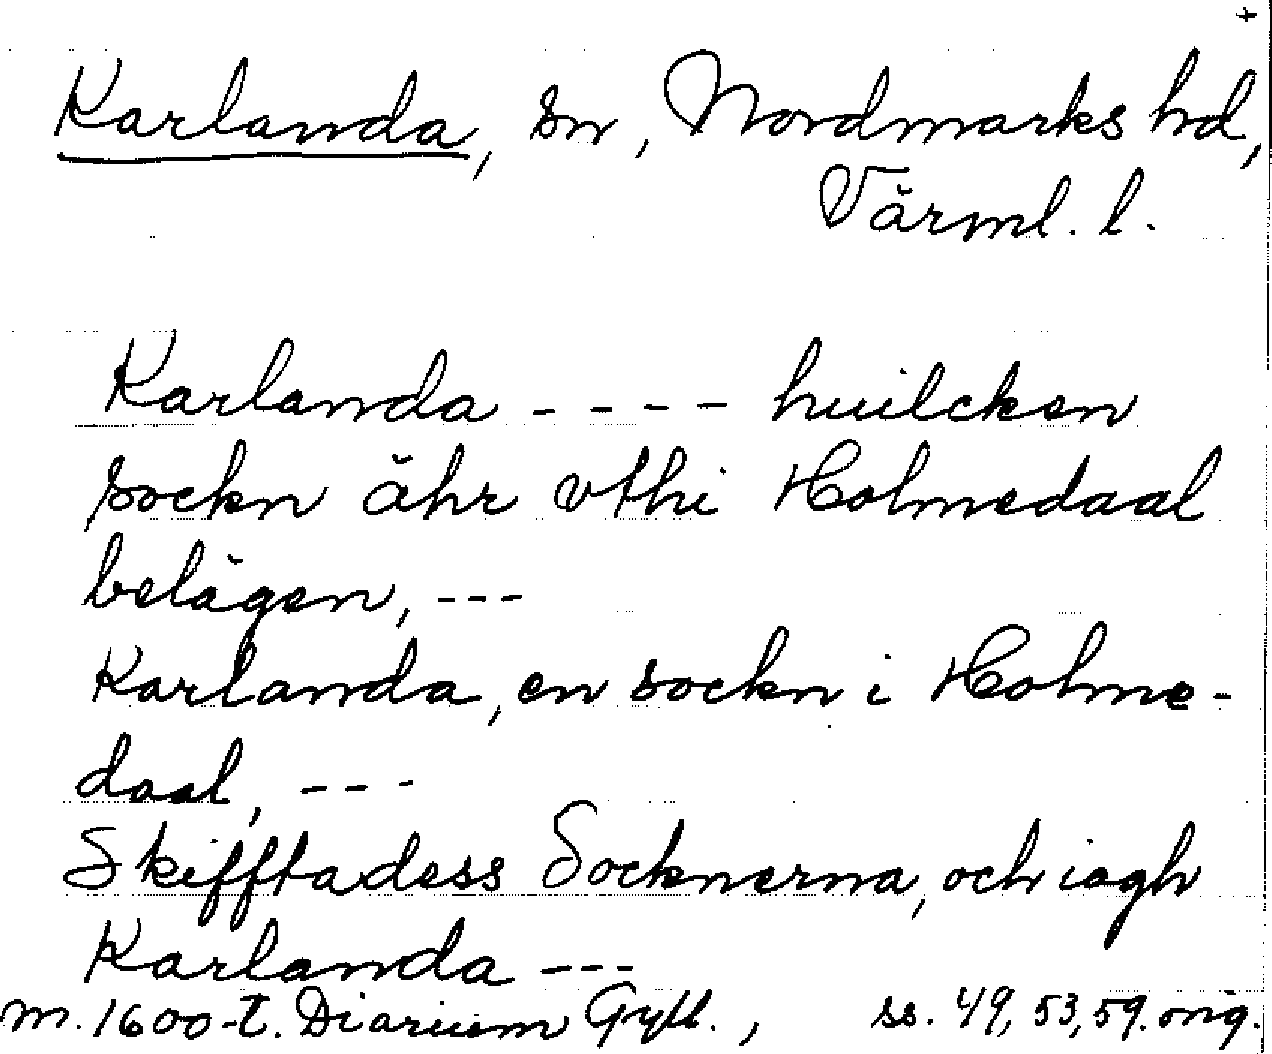 +
Karlanda, sn, Nordmarks hd,
Värml. l.
Karlanda - - - - huilcken
sockn ähr vthi Holmedaal
belägen, ---
Karlanda, en sockn i Holme-
daal, ---
Skifftadess Socknerna, och iagh
Karlanda ---
m. 1600-t. Diarium Gyll., ss. 49, 53, 59. orig.